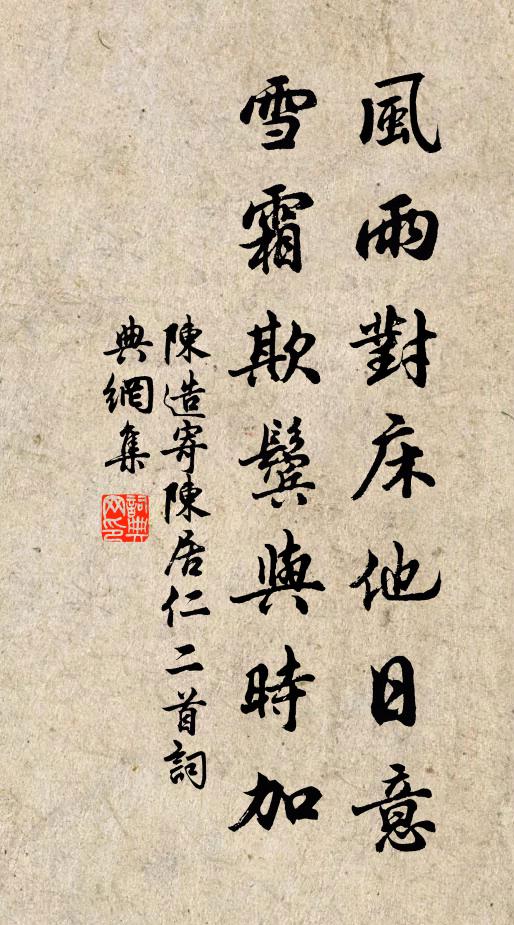 風雨對床他日意
雪霜欺鬢與時加
陳造寄陳居仁二首詞
典網集
詞典網印